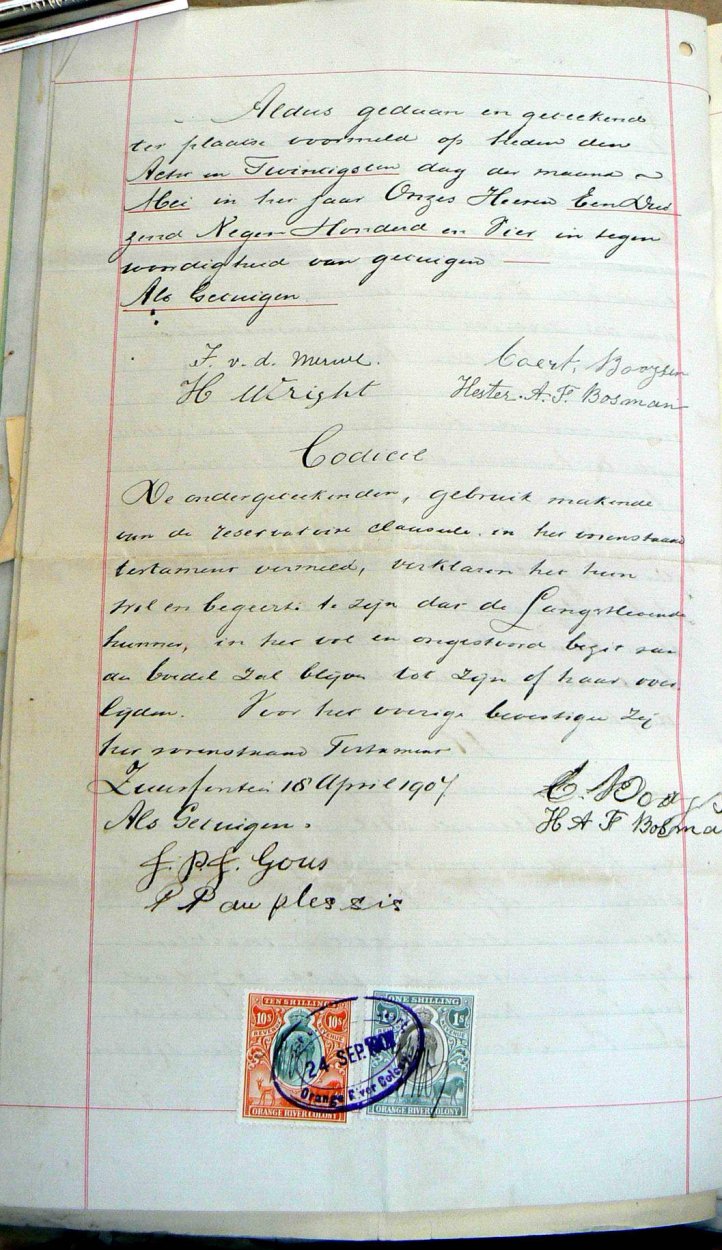 Aldus gedaan en geteekend
ter plaatse voormeld op heden den
Acht en Twintigsten dag der maand
Mei in het jaar Onzes Heeren Een Dui-
zend Negen Honderd en Vier in tegen
woordigheid van getuigen
Als Getuigen
F. v. d. Merwe. Coert. Booysen
H Wright Hester. A. F. Bosman
Codicil
De ondergeteekenden, gebruik makende
van de reservatoire clausule in het vorenstaand
testament vermeld, verklaren het hun
wil en begeerte te zijn dat de Langstlevende
hunner, in het vol en ongestoord bezit van
den boedel zal blijven tot zijn of haar over-
lijden. Voor het overige bevestigen zij
het vorenstaand Testament
Zuurfontein 18 April 1907 C. Booys
Als Getuigen. H A F Bosma
J. P. J. Gous
P du plessis
TEN SHILLINGS ONE SHILLING
10s 10s 1s
REVENUE REVENUE
24 SEP
Orange River Colony
ORANGE RIVER COLONY ORANGE RIVER COLONY